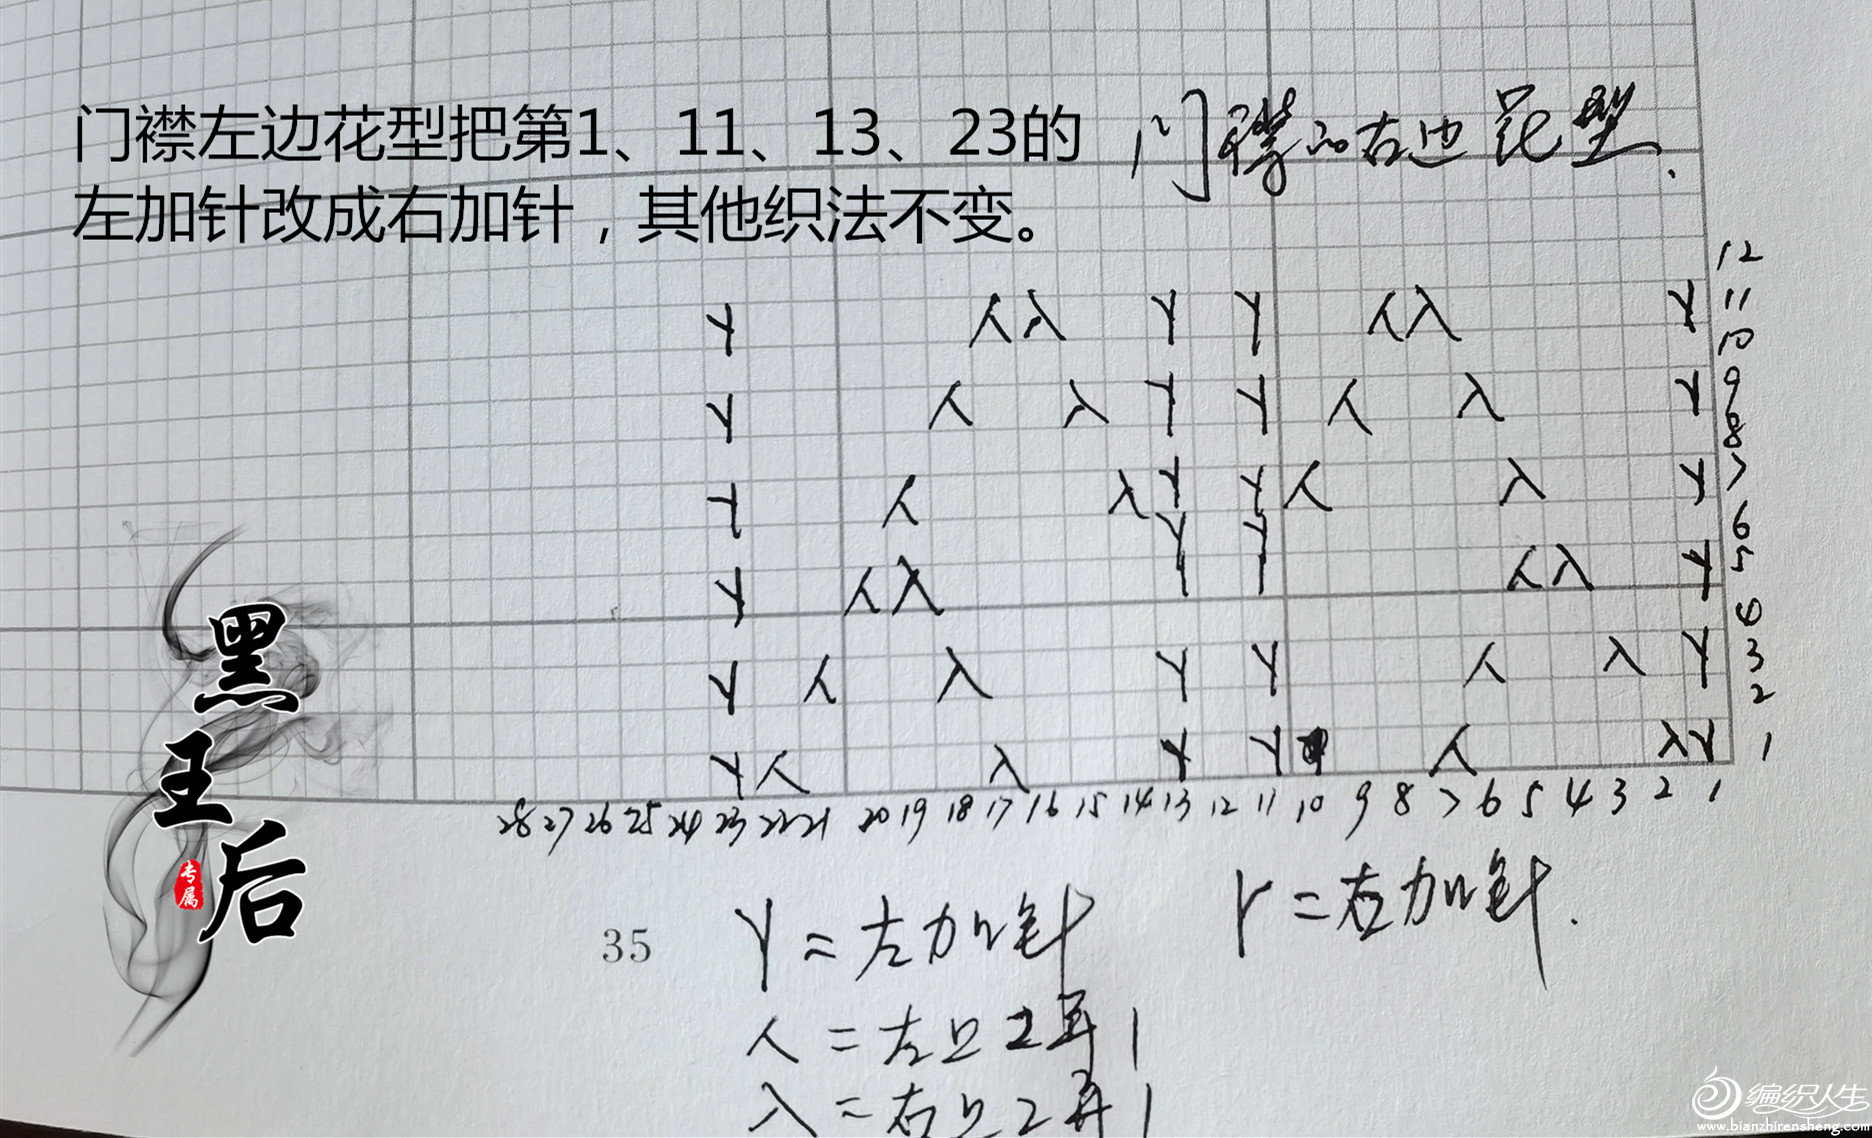 门襟左边花型把第1、11、13、23的
左加针改成右加针，其他织法不变。
门襟的右边花型.
12
Y 人入 Y Y 人入 Y 11
10
Y 人 入 Y Y 人 入 Y 9
8
Y 人 入 Y Y 人 入 Y 7
6
Y 人入 Y Y 人入 Y 5
4
Y 人 入 Y Y 人 入 Y 3
2
Y 人 入 Y Y 人 入 Y 1
28 27 26 25 24 23 22 21 20 19 18 17 16 15 14 13 12 11 10 9 8 7 6 5 4 3 2 1
35
Y = 左加针
Y = 右加针.
人 = 左上2并1
入 = 右上2并1
黑王后
专属
编织人生
www.bianzhirensheng.com